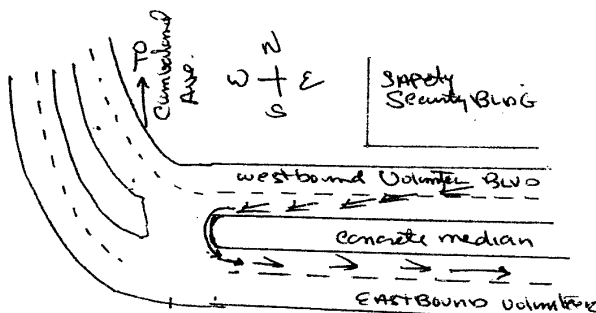 TO
Cumberland
Ave.
N
W E
S
SAfety
Security BLDG
westbound Volunteer BLVD
concrete median
EASTBOUND Volunteer